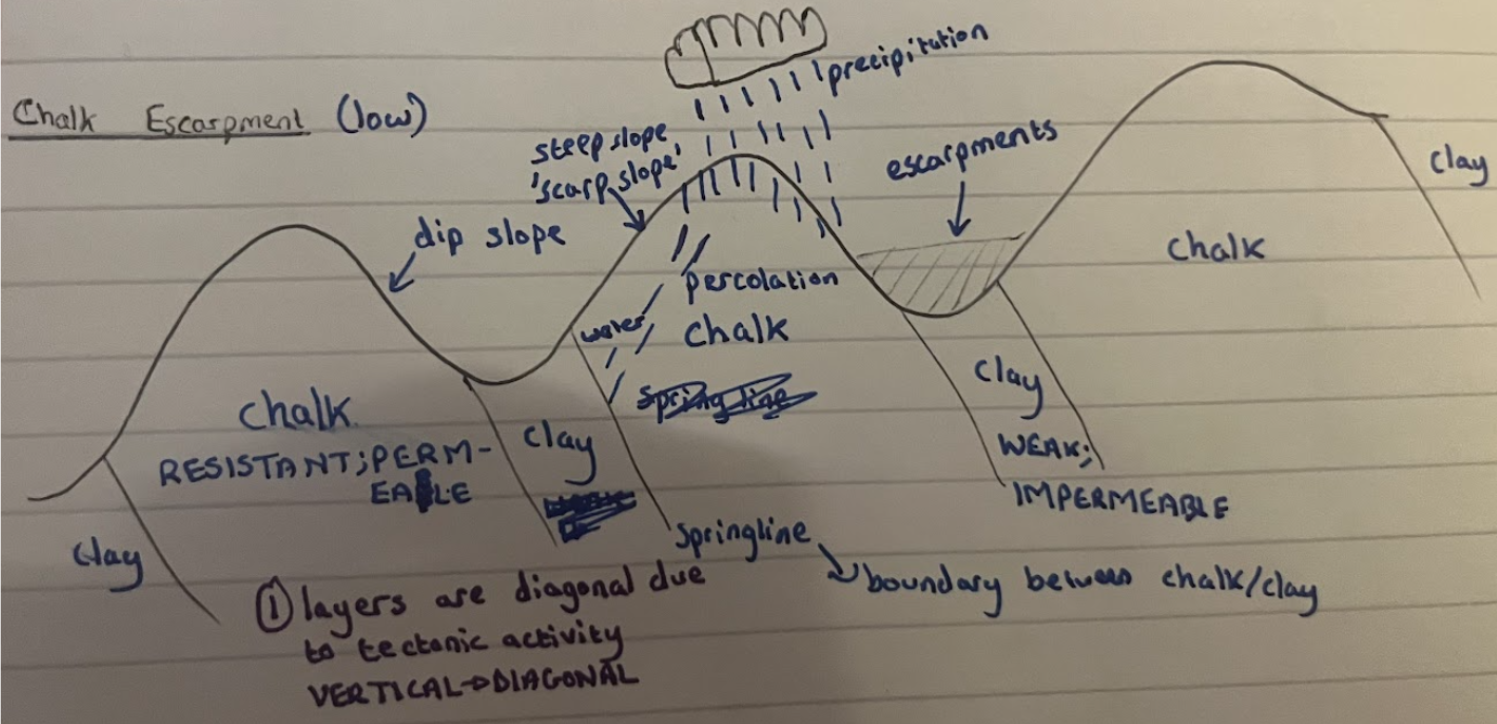 Chalk Escarpment (low)
precipitation
steep slope
'scarp slope'
escarpments
clay
dip slope
Chalk
percolation
water
Chalk
Spring line
Clay
Chalk
RESISTANT; PERM-
EABLE
Clay
WEAK;
IMPERMEABLE
Clay
Springline
boundary between chalk/clay
① layers are diagonal due
to tectonic activity
VERTICAL→DIAGONAL